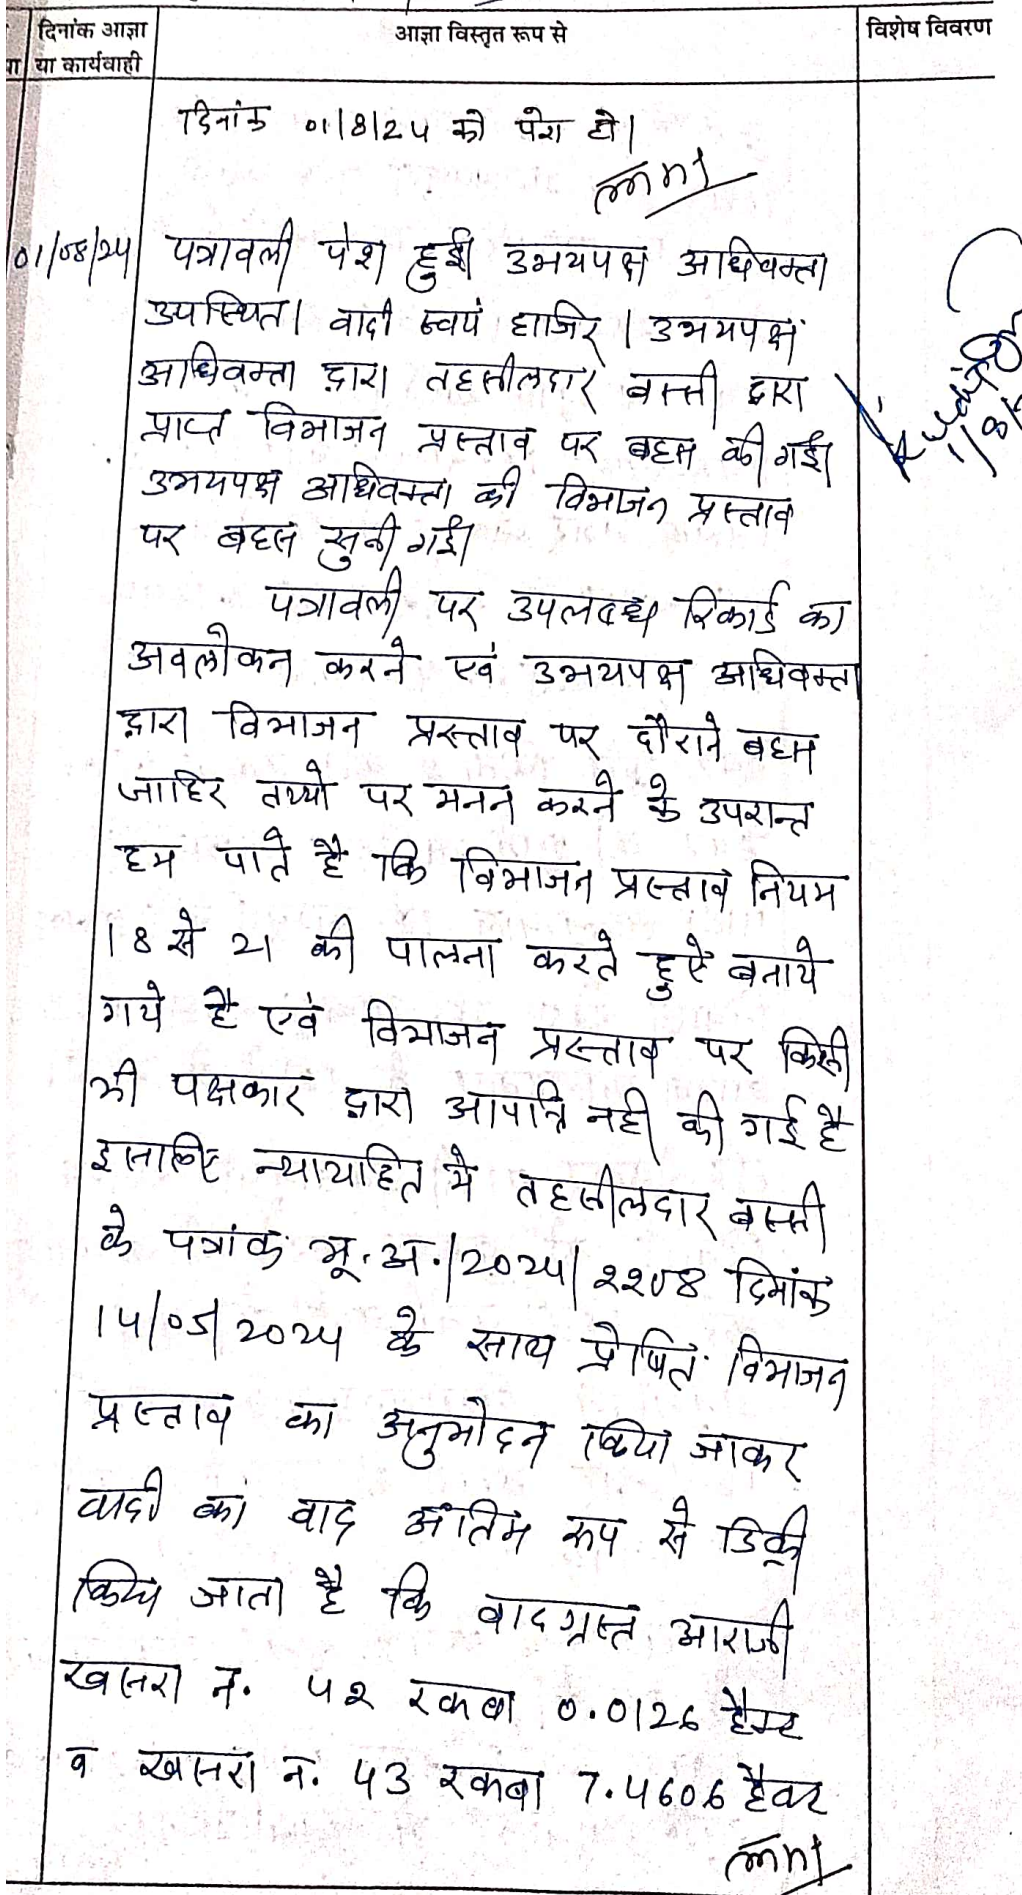 दिनांक आज्ञा
या कार्यवाही
आज्ञा विस्तृत रूप से
विशेष विवरण
दिनांक 01/8/24 को पेश हो।
01/08/24 पत्रावली पेश हुई। उभयपक्ष अधिवक्ता
उपस्थित। वादी स्वयं हाजिर। उभयपक्ष
अधिवक्ता द्वारा तहसीलदार बस्सी द्वारा
प्राप्त विभाजन प्रस्ताव पर बहस की गई।
उभयपक्ष अधिवक्ता की विभाजन प्रस्ताव
पर बहस सुनी गई।
पत्रावली पर उपलब्ध रिकार्ड का
अवलोकन करने एवं उभयपक्ष अधिवक्ता
द्वारा विभाजन प्रस्ताव पर दौराने बहस
जाहिर तथ्यो पर मनन करने के उपरान्त
हम पाते है कि विभाजन प्रस्ताव नियम
18 से 21 की पालना करते हुऐ बनाये
गये है एवं विभाजन प्रस्ताव पर किसी
भी पक्षकार द्वारा आपत्ति नही की गई है
इसलिए न्यायहित मे तहसीलदार बस्सी
के पत्रांक भू.अ./2024/2208 दिनांक
14/05/2024 के साथ प्रेषित विभाजन
प्रस्ताव का अनुमोदन किया जाकर
वादी का वाद अंतिम रूप से डिक्री
किया जाता है कि वादग्रस्त आराजी
खसरा न. 42 रकबा 0.0126 हैक्ट
व खसरा न. 43 रकबा 7.4606 हैक्ट